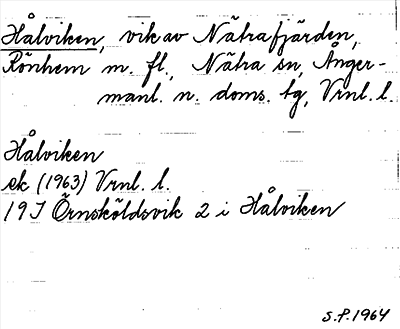 Hålviken, vik av Nätrafjärden,
Rönhem m. fl., Nätra sn, Ånger-
manl. n. doms. tg, Vrnl. l.
Hålviken
ek (1963) Vrnl. l.
19J Örnsköldsvik 2 i Hålviken
S.P. 1964